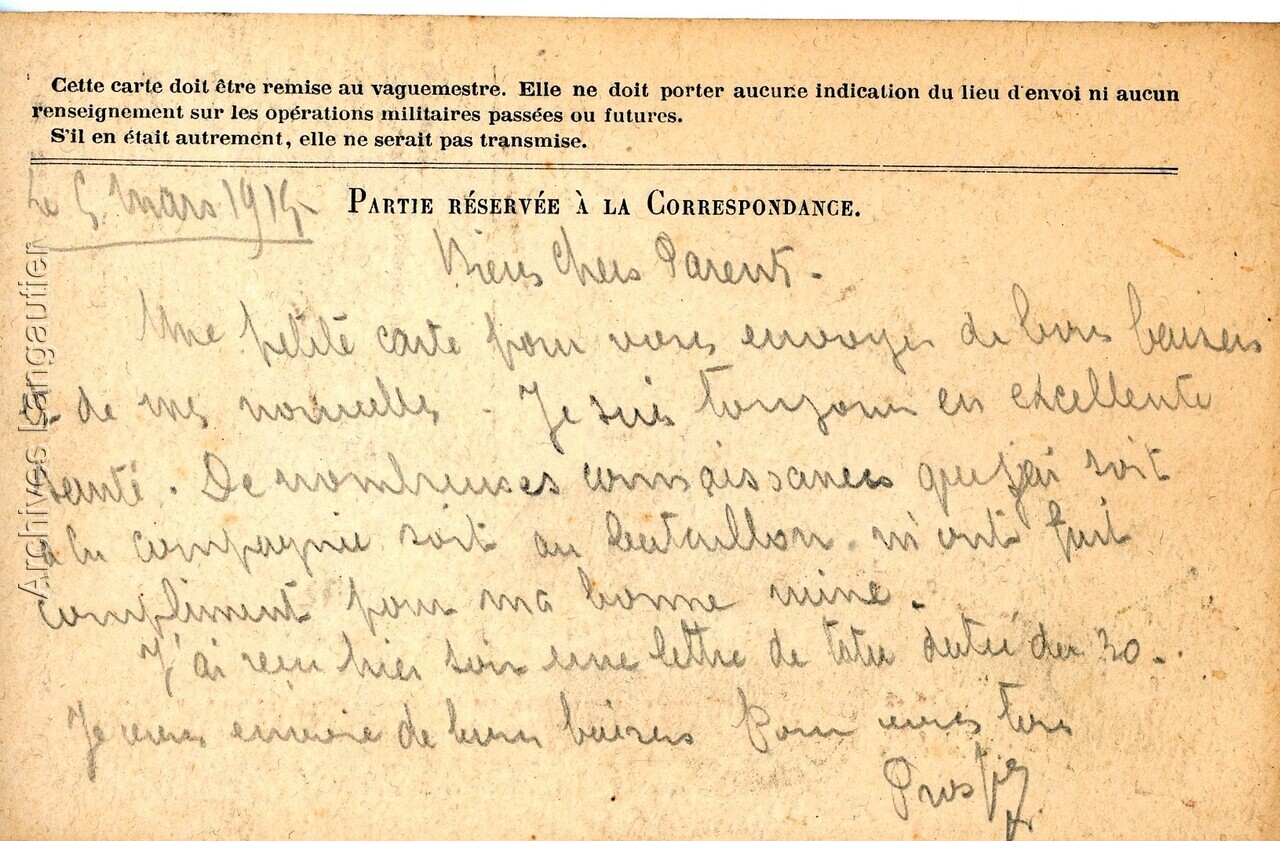 Cette carte doit être remise au vaguemestre. Elle ne doit porter aucune indication du lieu d'envoi ni aucun
renseignement sur les opérations militaires passées ou futures.
S'il en était autrement, elle ne serait pas transmise.
Le 5 mars 1915
PARTIE RÉSERVÉE À LA CORRESPONDANCE.
Biens Chers Parents.
Une petite carte pour vous envoyer de bons baisers
et de mes nouvelles. Je suis toujours en excellente
santé. De nombreuses connaissances que j'ai soit
à la compagnie soit au bataillon m'ont fait
compliment pour ma bonne mine.
J'ai reçu hier soir une lettre de datée du 20.
Je vous envoie de bons baisers pour vous tous
Prosper
Archives Langautier